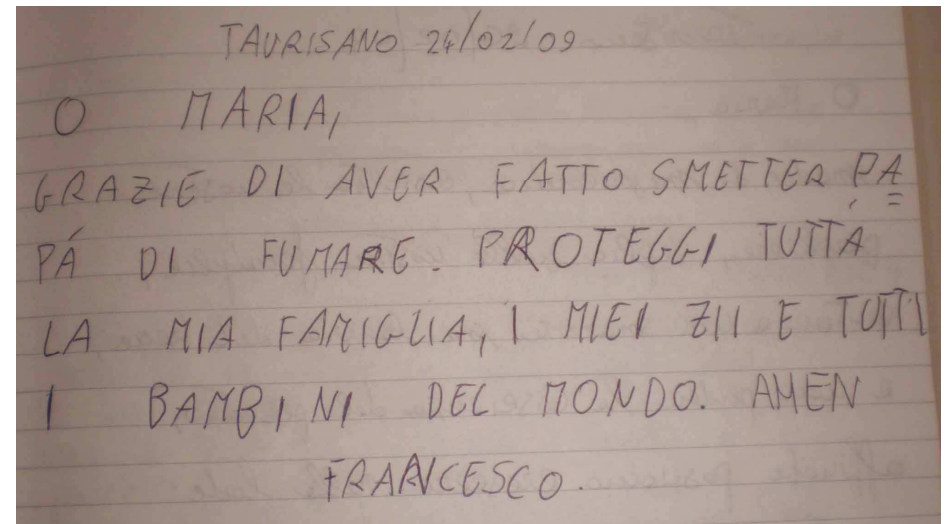 TAURISANO 24/02/09
O MARIA,
GRAZIE DI AVER FATTO SMETTER PA=
PÁ DI FUMARE. PROTEGGI TUTTA
LA MIA FAMIGLIA, I MIEI ZII E TUTTI
I BAMBINI DEL MONDO. AMEN
FRANCESCO.